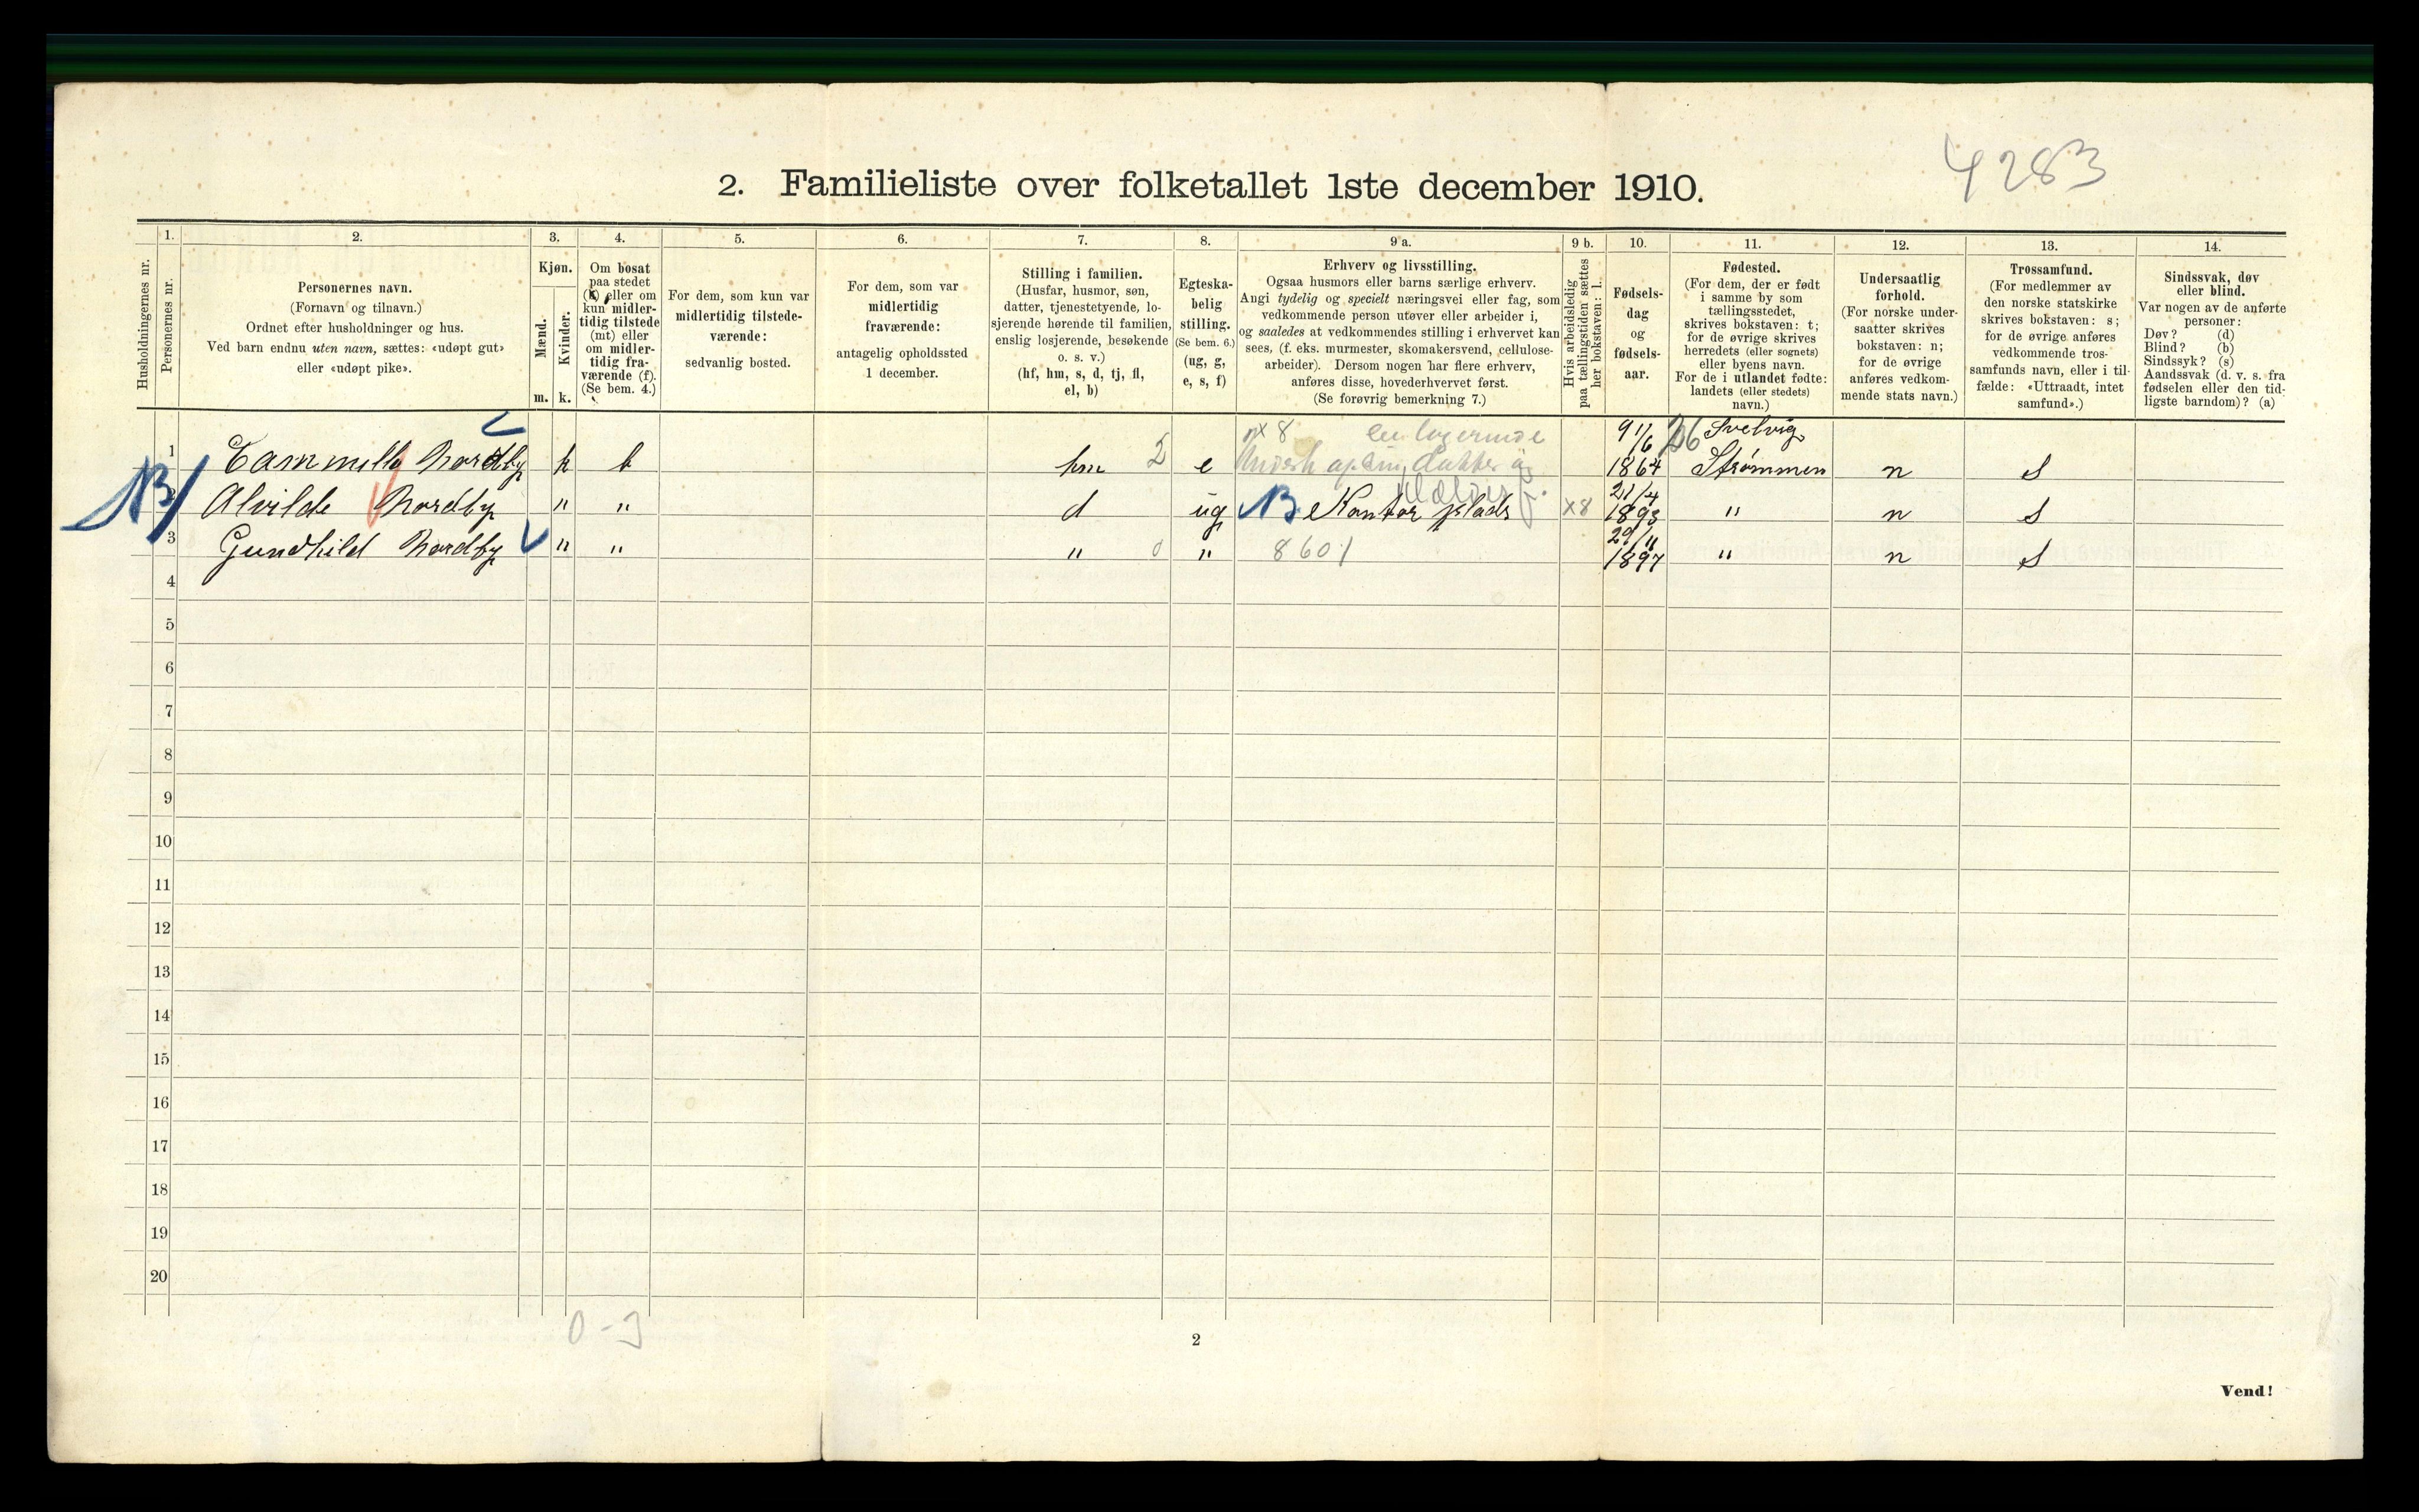 4283
2. Familieliste over folketallet 1ste december 1910.
Husholdningernes nr.
1.
Personernes nr.
2.
Personernes navn.
(Fornavn og tilnavn.)
Ordnet efter husholdninger og hus.
Ved barn endnu uten navn, sættes: «udøpt gut»
eller «udøpt pike».
3.
Kjøn.
Mænd.
m.
Kvinder.
k.
4.
Om bosat
paa stedet
(b) eller om
kun midler-
tidig tilstede
(mt) eller
om midler-
tidig fra-
værende (f).
(Se bem. 4.)
5.
For dem, som kun var
midlertidig tilstede-
værende:
sedvanlig bosted.
6.
For dem, som var
midlertidig
fraværende:
antagelig opholdssted
1 december.
7.
Stilling i familien.
(Husfar, husmor, søn,
datter, tjenestetyende, lo-
sjerende hørende til familien,
enslig losjerende, besøkende
o. s. v.)
(hf, hm, s, d, tj, fl,
el, b)
8.
Egteska-
belig
stilling.
(Se bem. 6.)
(ug, g,
e, s, f)
9 a.
Erhverv og livsstilling.
Ogsaa husmors eller barns særlige erhverv.
Angi tydelig og specielt næringsvei eller fag, som
vedkommende person utøver eller arbeider i,
og saaledes at vedkommendes stilling i erhvervet kan
sees, (f. eks. murmester, skomakersvend, cellulose-
arbeider). Dersom nogen har flere erhverv,
anføres disse, hovederhvervet først.
(Se forøvrig bemerkning 7.)
9 b.
Hvis arbeidsledig
paa tællingstiden sættes
her bokstaven: l.
10.
Fødsels-
dag
og
fødsels-
aar.
11.
Fødested.
(For dem, der er født
i samme by som
tællingsstedet,
skrives bokstaven: t;
for de øvrige skrives
herredets (eller sognets)
eller byens navn.
For de i utlandet fødte:
landets (eller stedets)
navn.)
12.
Undersaatlig
forhold.
(For norske under-
saatter skrives
bokstaven: n;
for de øvrige
anføres vedkom-
mende stats navn.)
13.
Trossamfund.
(For medlemmer av
den norske statskirke
skrives bokstaven: s;
for de øvrige anføres
vedkommende tros-
samfunds navn, eller i til-
fælde: «Uttraadt, intet
samfund».)
14.
Sindssvak, døv
eller blind.
Var nogen av de anførte
personer:
Døv? (d)
Blind? (b)
Sindssyk? (s)
Aandssvak (d. v. s. fra
fødselen eller den tid-
ligste barndom)? (a)
x8
1 Nordby k b hm 2 e datter 9/6 1864 26 Svelvig Strømmen n s
2 Alvilde Nordby " " d ug Kontor plads x8 21/4 1893 " n s
3 Gundhild Nordby " " " 0 " 8601 29/11 1897 " n s
4
5
6
7
8
9
10
11
12
13
14
15
16
17
18
19
20
0-3
2
Vend!